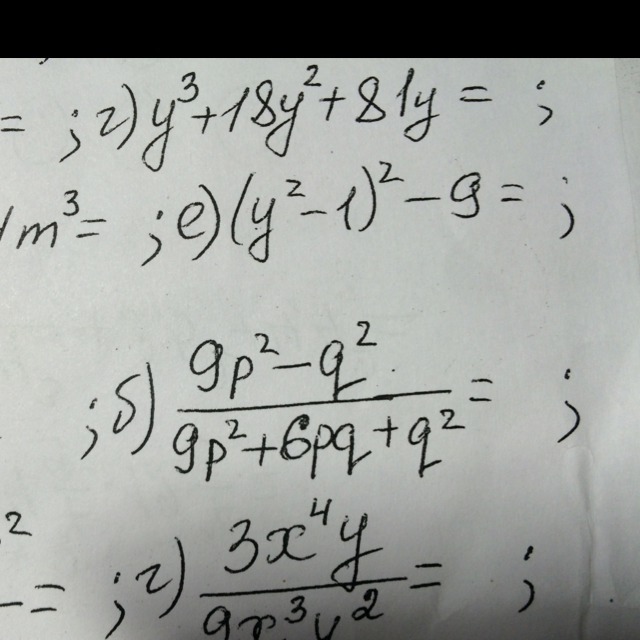 = ; г) y³+18y²+81y= ;
m³= ; е) (y²-1)²-9= ;
; б) (9p²-q²)/(9p²+6pq+q²)= ;
²
= ; г) (3x⁴y)/(9x³y²)= ;